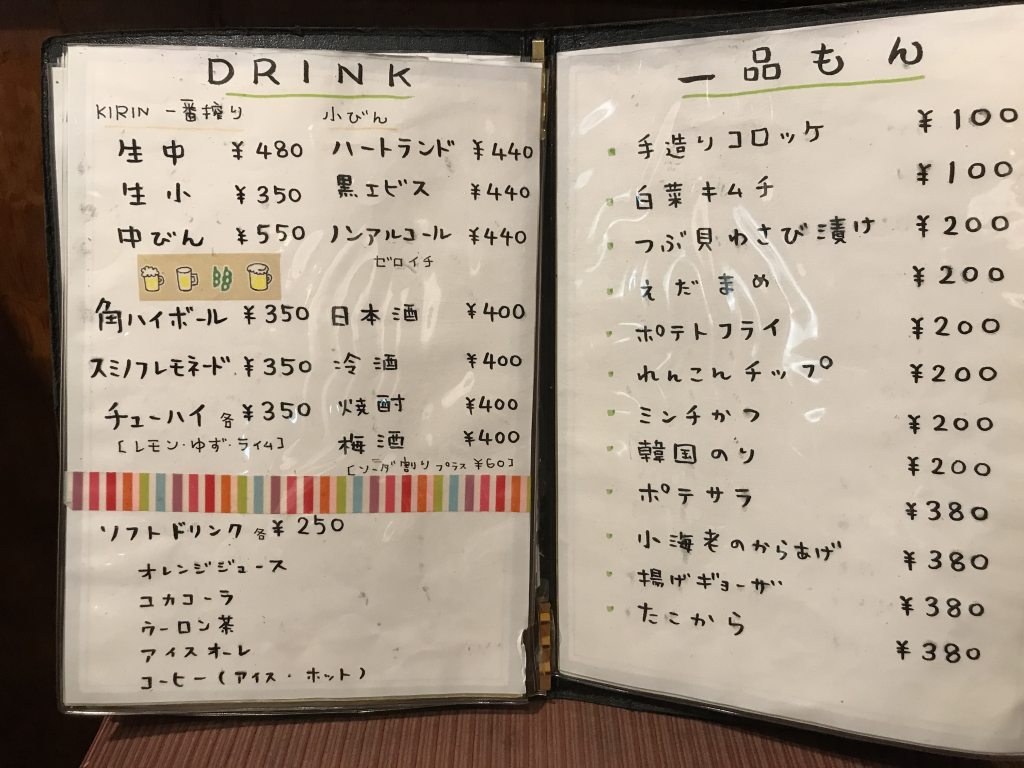 DRINK
KIRIN 一番搾り
生中 ¥480
生小 ¥350
中びん ¥550
角ハイボール ¥350
スミノフレモネード ¥350
チューハイ 各 ¥350
[レモン・ゆず・ライム]
小びん
ハートランド ¥440
黒エビス ¥440
ノンアルコール ¥440
ゼロイチ
日本酒 ¥400
冷酒 ¥400
焼酎 ¥400
梅酒 ¥400
[ソーダ割り プラス ¥60]
ソフトドリンク 各 ¥250
オレンジジュース
コカコーラ
ウーロン茶
アイスオーレ
コーヒー(アイス・ホット)
一品もん
手造りコロッケ ¥100
白菜キムチ ¥100
つぶ貝わさび漬け ¥200
えだまめ ¥200
ポテトフライ ¥200
れんこんチップ ¥200
ミンチかつ ¥200
韓国のり ¥200
ポテサラ ¥380
小海老のからあげ ¥380
揚げギョーザ ¥380
たこから ¥380